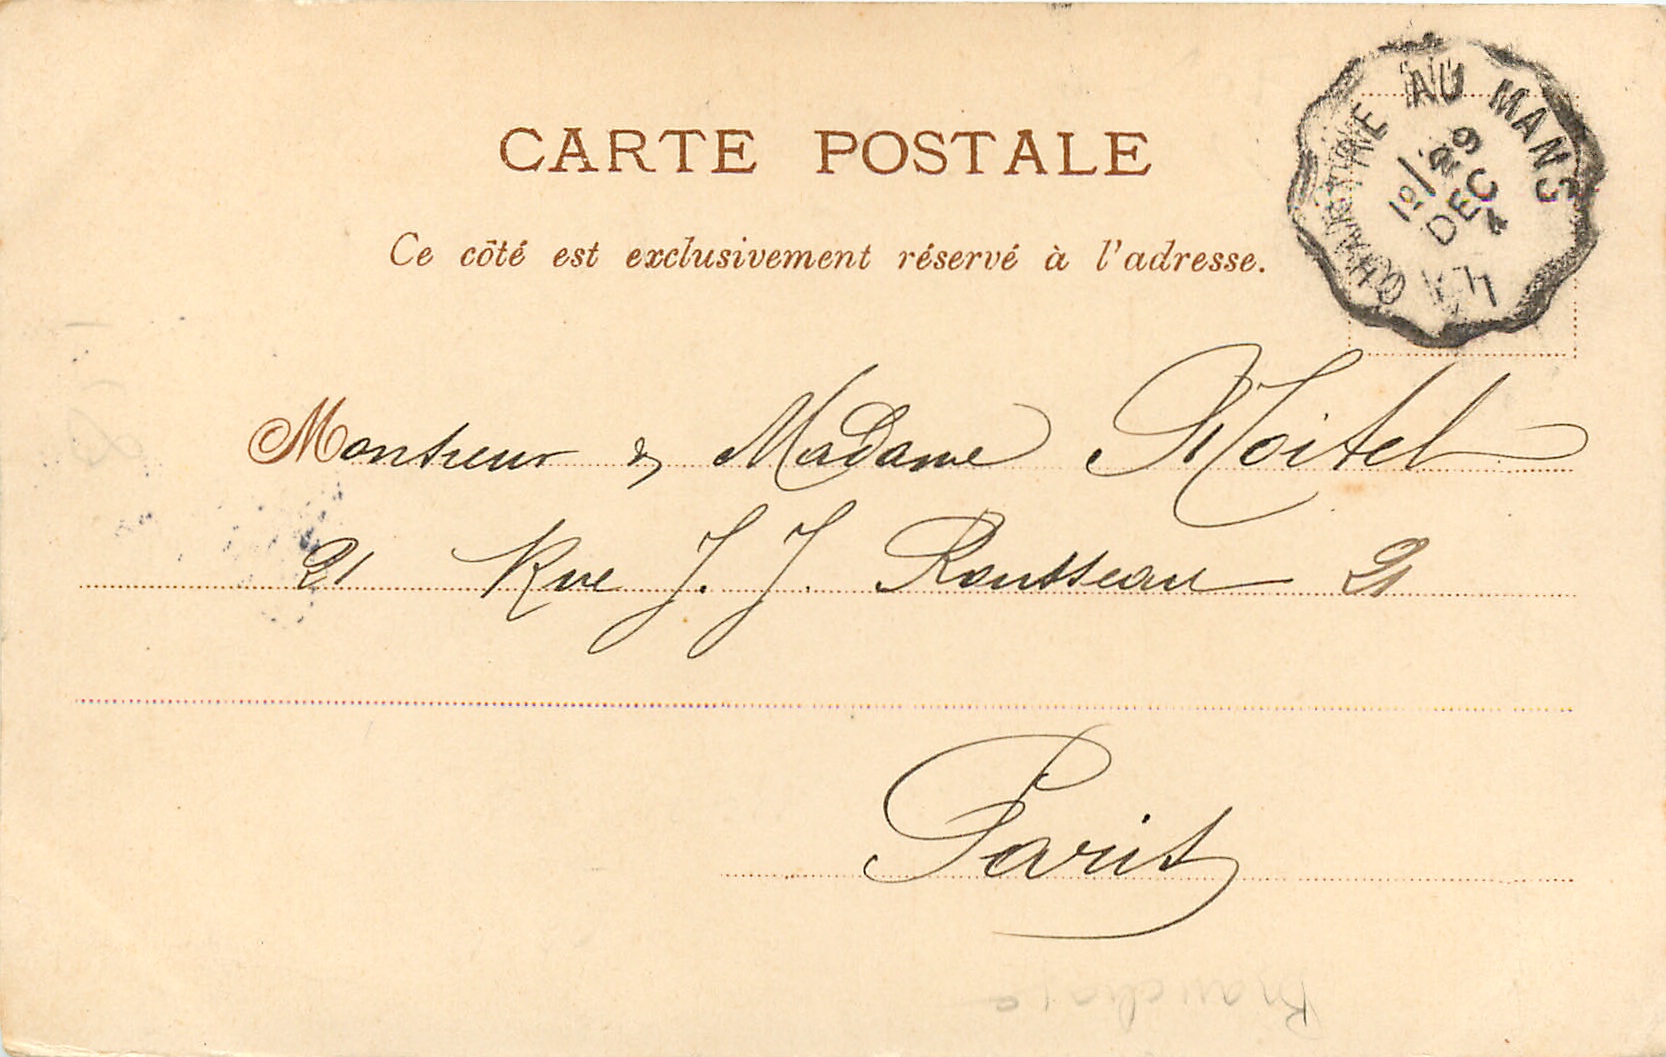 CARTE POSTALE
Ce côté est exclusivement réservé à l'adresse.
AU MANS
29
DEC
Monsieur & Madame Noitel
21 Rue J. J. Rousseau 21
Paris